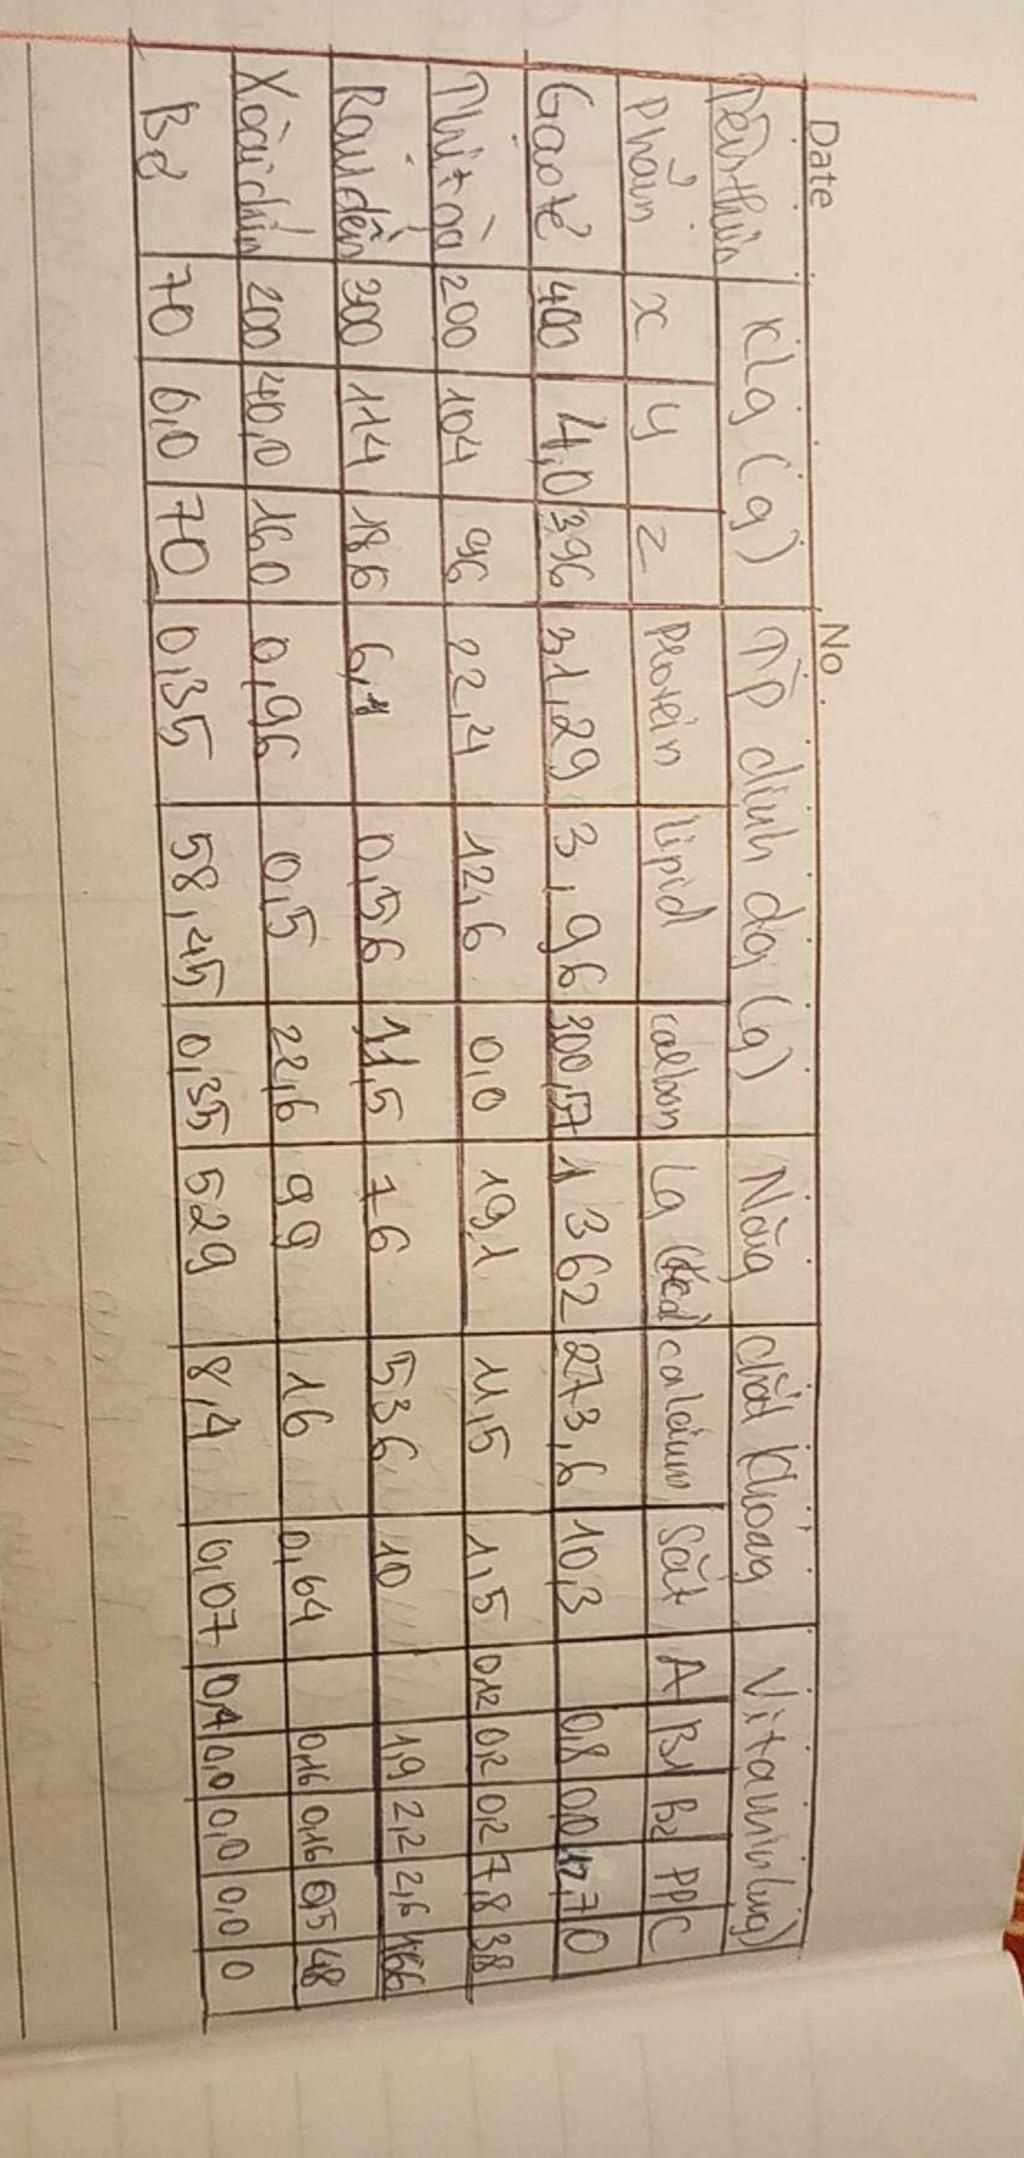 Date No
Tên thực Klg (g) Tp dinh dg (g) Năng chất khoáng Vitamin (mg)
Phẩm x y z Protein Lipid cacbon Lg (Kcal) calcium Sắt A B1 B2 PP C
Gạo tẻ 400 4,0 396 31,29 3,96 300,57 1362 273,6 10,3 0,8 0,0 12,7 0
Thịt gà 200 104 96 22,4 12,6 0,0 191 11,5 1,5 0,12 0,2 0,2 7,8 3,8
Rau dền 300 114 186 6,1 0,56 11,5 76 536 10 1,9 2,2 2,6 166
Xoài chín 200 40,0 160 0,96 0,5 22,6 99 16 0,64 0,16 0,16 0,5 48
Bơ 70 0,0 70 0,35 58,45 0,35 529 8,4 0,07 0,4 0,0 0,0 0,0 0